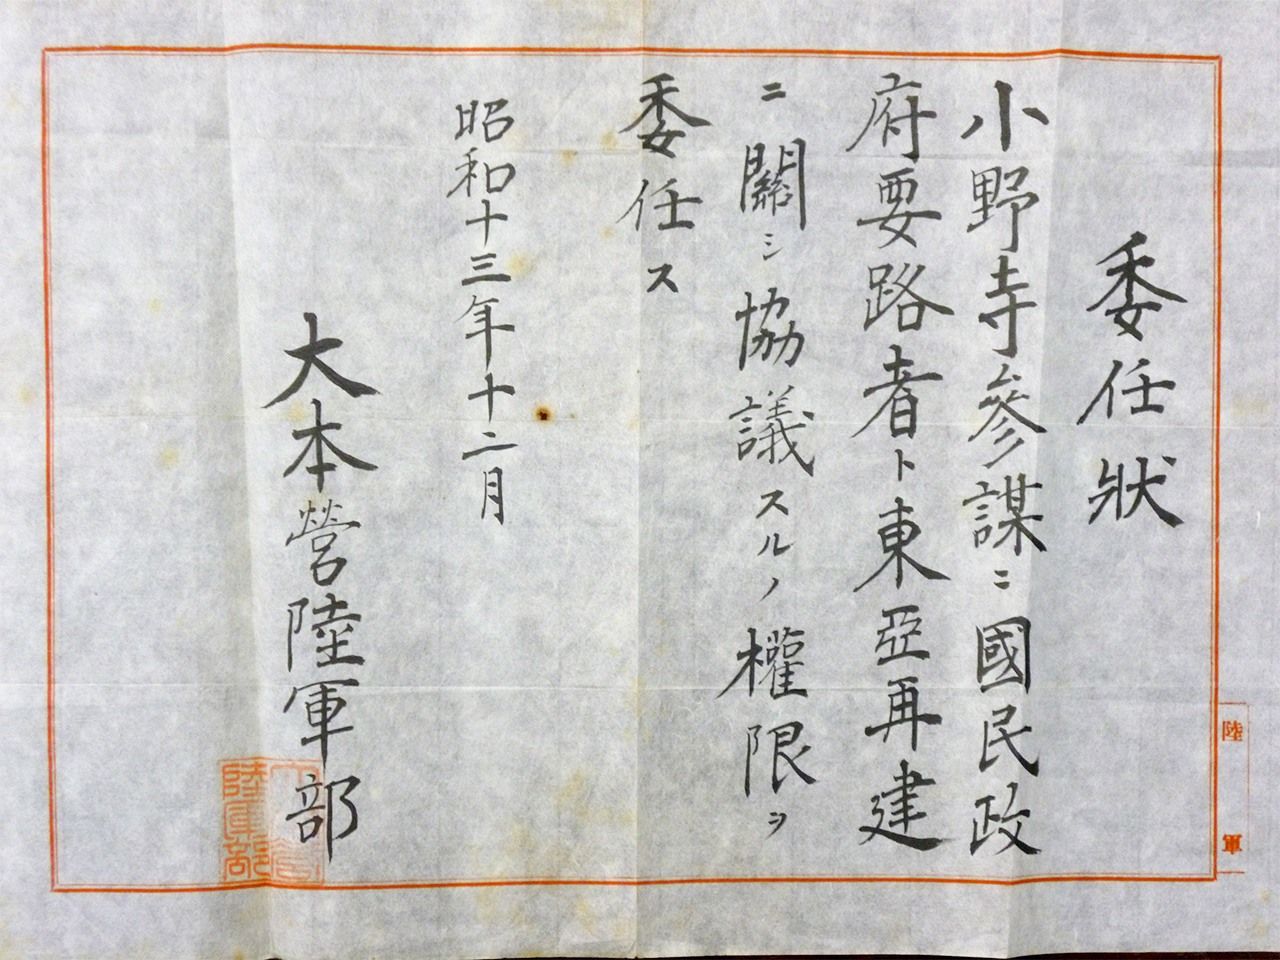 委任狀
小野寺參謀ニ國民政
府要路者ト東亞再建
ニ關シ協議スルノ權限ヲ
委任ス
昭和十三年十二月
大本營陸軍部
陸軍
陸軍部